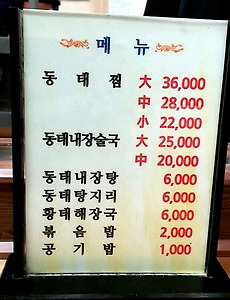 메 뉴
동 태 찜 大 36,000
中 28,000
小 22,000
동태내장술국 大 25,000
中 20,000
동태내장탕 6,000
동태탕지리 6,000
황태해장국 6,000
볶 음 밥 2,000
공 기 밥 1,000